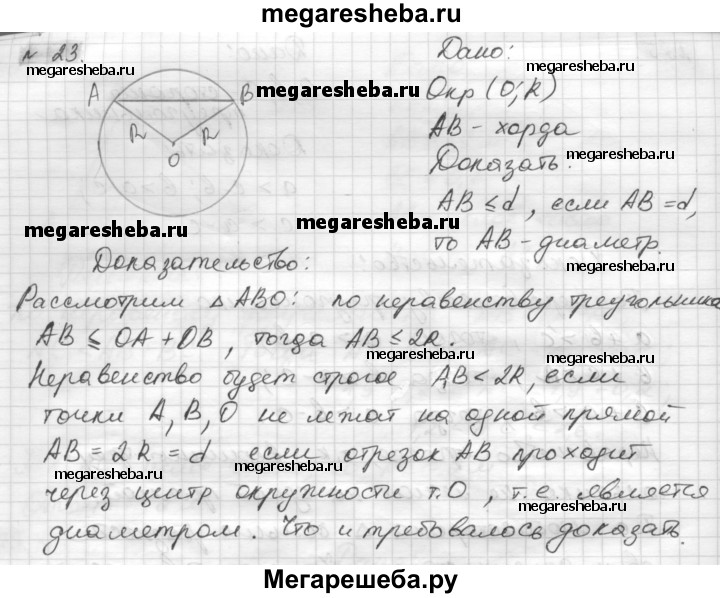 megaresheba.ru
№ 23.
Дано:
megaresheba.ru
A
B
megaresheba.ru
megaresheba.ru
Окр (O; R)
R
R
O
AB - хорда
Доказать:
megaresheba.ru
AB ≤ d, если AB = d,
megaresheba.ru
megaresheba.ru
то AB - диаметр.
Доказательство:
Рассмотрим △ ABO: по неравенству треугольника
AB ≤ OA + OB, тогда AB ≤ 2R.
megaresheba.ru
Неравенство будет строгое AB < 2R, если
точки A, B, O не лежат на одной прямой
AB = 2R = d если отрезок AB проходит
megaresheba.ru
megaresheba.ru
через центр окружности т.O, т.е. является
megaresheba.ru
диаметром. Что и требовалось доказать.
Мегарешеба.ру